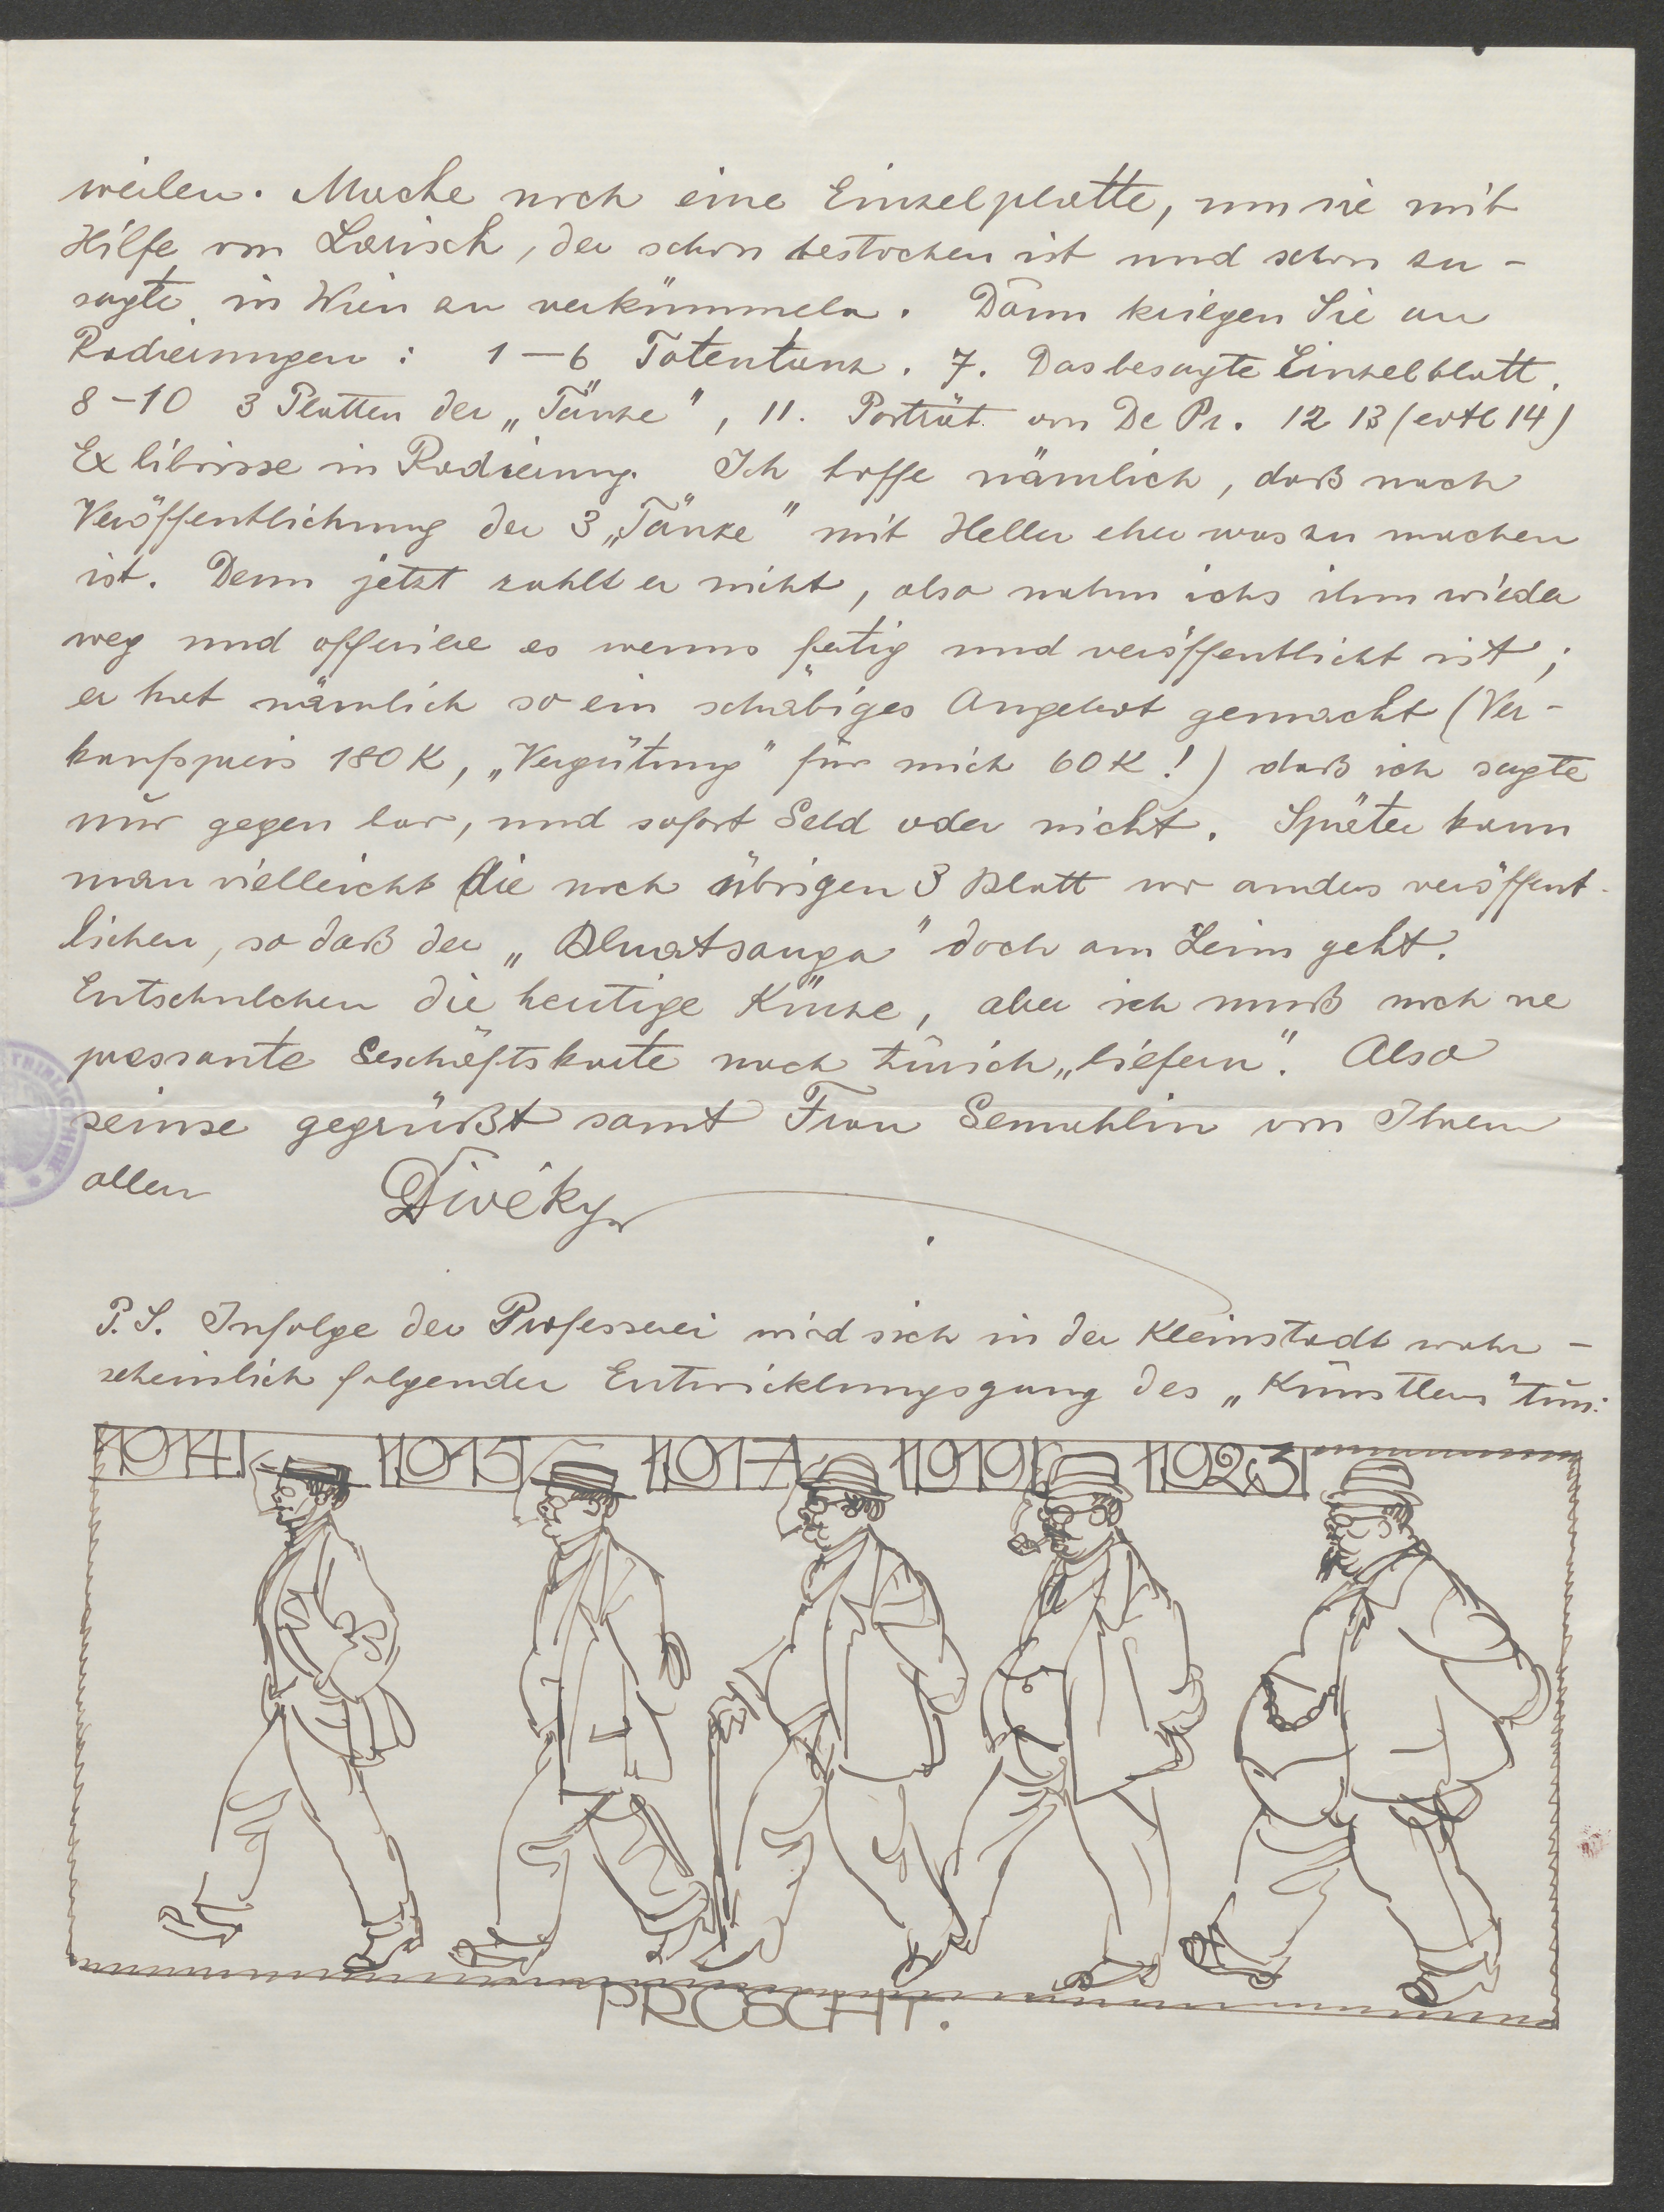 weilen. Mache noch eine Einzelplatte, um sie mit
Hilfe von Larisch, der schon bestochen ist und schon zu-
sagte, in Wien zu verkümmeln. Dann kriegen Sie an
Radierungen: 1–6 Totentanz. 7. Das besagte Einzelblatt.
8–10 3 Platten der „Tänze", 11. Porträt von De Pr. 12 13 (evtl 14)
Ex librisse in Radierung. Ich hoffe nämlich, daß nach
Veröffentlichung der 3 „Tänze" mit Heller eher was zu machen
ist. Denn jetzt zahlt er nicht, also nahm ichs ihm wieder
weg und offeriere es wenns fertig und veröffentlicht ist;
er hat nämlich so ein schäbiges Angebot gemacht (Ver-
kaufspreis 180 K, „Vergütung" für mich 60 K!) daß ich sagte
nur gegen bar, und sofort Geld oder nicht. Später kann
man vielleicht die noch übrigen 3 Blatt wo anders veröffent-
lichen, so daß der „Bluatsauga" doch am Leim geht.
Entschulchen die heutige Kürze, aber ich muß noch ne
pressante Geschäftskarte nach Zürich „liefern". Also
seinse gegrüßt samt Frau Gemahlin von Ihrem
alten Divéky
P.S. Infolge der Professerei wird sich in der Kleinstadt wahr-
scheinlich folgender Entwicklungsgang des „Künstlers" tun:
1914 1915 1917 1919 1923
PROSCHT.